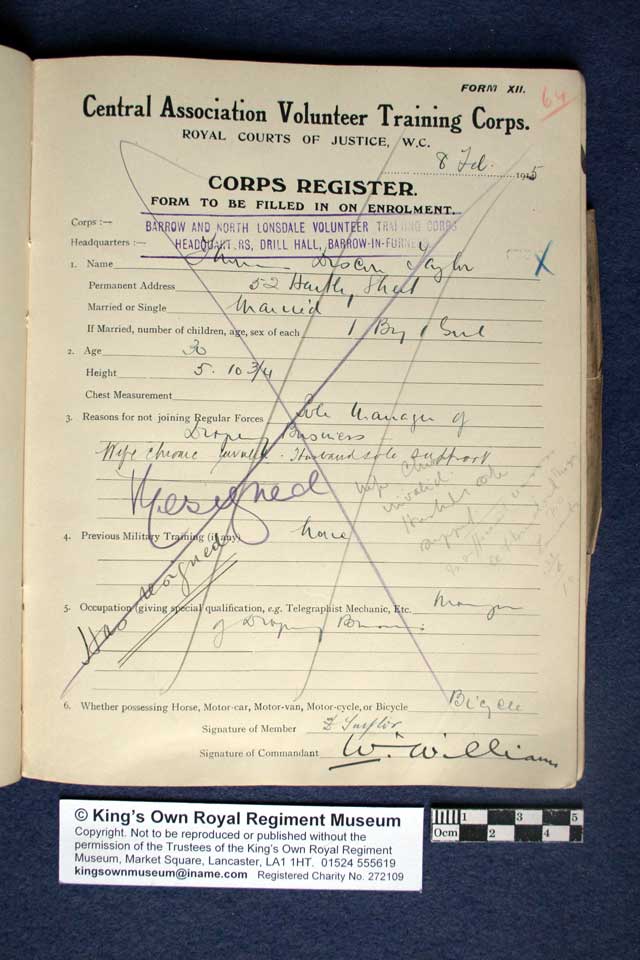 FORM XII.
64
Central Association Volunteer Training Corps.
ROYAL COURTS OF JUSTICE, W.C.
8 Feb. 1915
CORPS REGISTER.
FORM TO BE FILLED IN ON ENROLMENT.
Corps :— BARROW AND NORTH LONSDALE VOLUNTEER TRAINING CORPS
Headquarters :— HEADQUARTERS, DRILL HALL, BARROW-IN-FURNESS
1. Name Taylor
Permanent Address 52 Street
Married or Single Married
If Married, number of children, age, sex of each 1 Boy 1 Girl
2. Age 30
Height 5. 10 3/4
Chest Measurement
3. Reasons for not joining Regular Forces Sole Manager of
Drapery Business
Wife chronic invalid. Husband sole support
Resigned
Wife Chronic
invalid.
Husband sole
support
4. Previous Military Training (if any) None
Has resigned
5. Occupation (giving special qualification, e.g. Telegraphist Mechanic, Etc. Manager
of Drapery Business
6. Whether possessing Horse, Motor-car, Motor-van, Motor-cycle, or Bicycle Bicycle
Signature of Member Taylor
Signature of Commandant W. Williams
© King's Own Royal Regiment Museum
Copyright. Not to be reproduced or published without the
permission of the Trustees of the King's Own Royal Regiment
Museum, Market Square, Lancaster, LA1 1HT. 01524 555619
kingsownmuseum@iname.com Registered Charity No. 272109
1 3 5
0cm 2 4